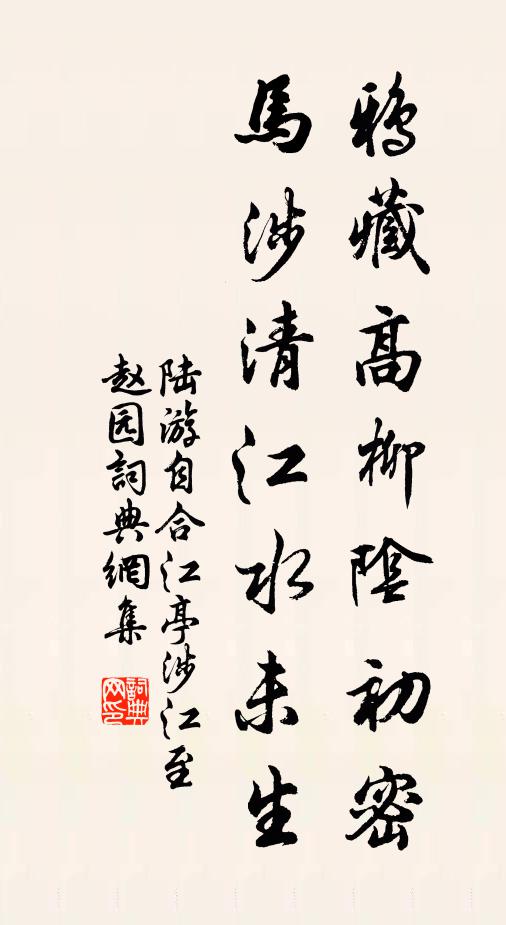 鴉藏高柳陰初密
馬涉清江水未生
陆游自合江亭涉江至
赵园詞典網集
詞典
网印